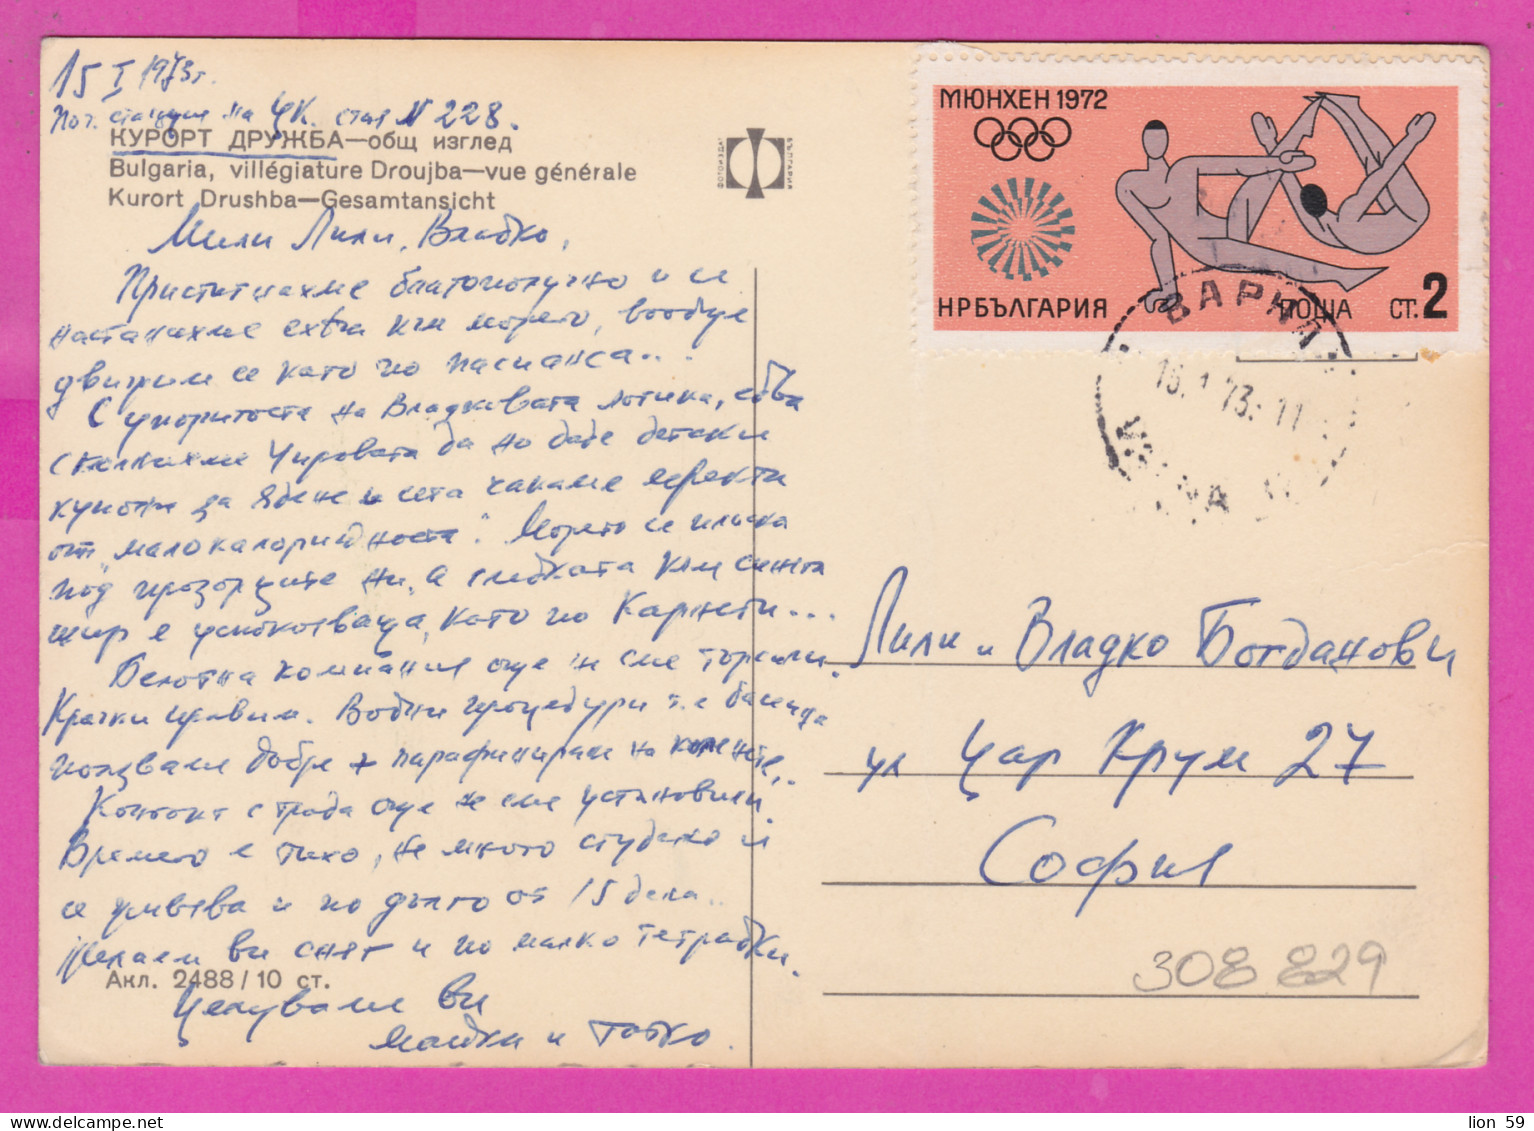 15 I 1973 г.
Поч. станция на ЦК. стая N 228.
КУРОРТ ДРУЖБА—общ изглед
Bulgaria, villégiature Droujba—vue générale
Kurort Drushba—Gesamtansicht
ФОТОИЗДАТ
БЪЛГАРИЯ
Мили Лили, Владко,
Пристигнахме благополучно и се
настанихме extra към морето, вообще
движим се като по пасианса...
С упоритостта на Владковата логика,
да по даде
купони за ядене и сега чакаме ефекта
от „малокалоричността". Морето се плиска
под прозорците ни, а гледката към синята
шир е успокояваща, като по Карнеги...
Белотна компания още не сме търсили.
Крачки правим. Водни процедури т.е. басейна
ползваме добре + парафинирам на коленете..
Контакт с града още не сме установили.
Времето е тихо, не много студено и
се умъява и по дълго от 15 дена..
Желаем ви сняг и по малко тетрадки.
Акл. 2488/10 ст.
Целуваме ви
Майки и Татко.
МЮНХЕН 1972
НРБЪЛГАРИЯ
ПОЩА
СТ. 2
ВАРНА
16.1.73.-11
VARNA
Лили и Владко Богданови
ул Цар Крум 27
София
308 829
lion 59